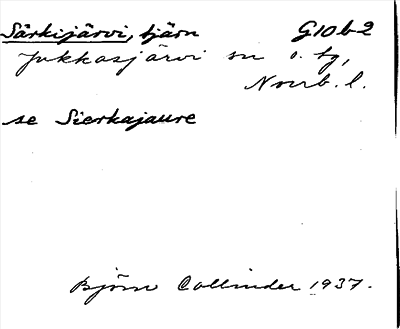 Särkijärvi, tjärn G10b2
Jukkasjärvi sn o. tg,
Norrb. l.
se Sierkajaure
Björn Collinder 1937.